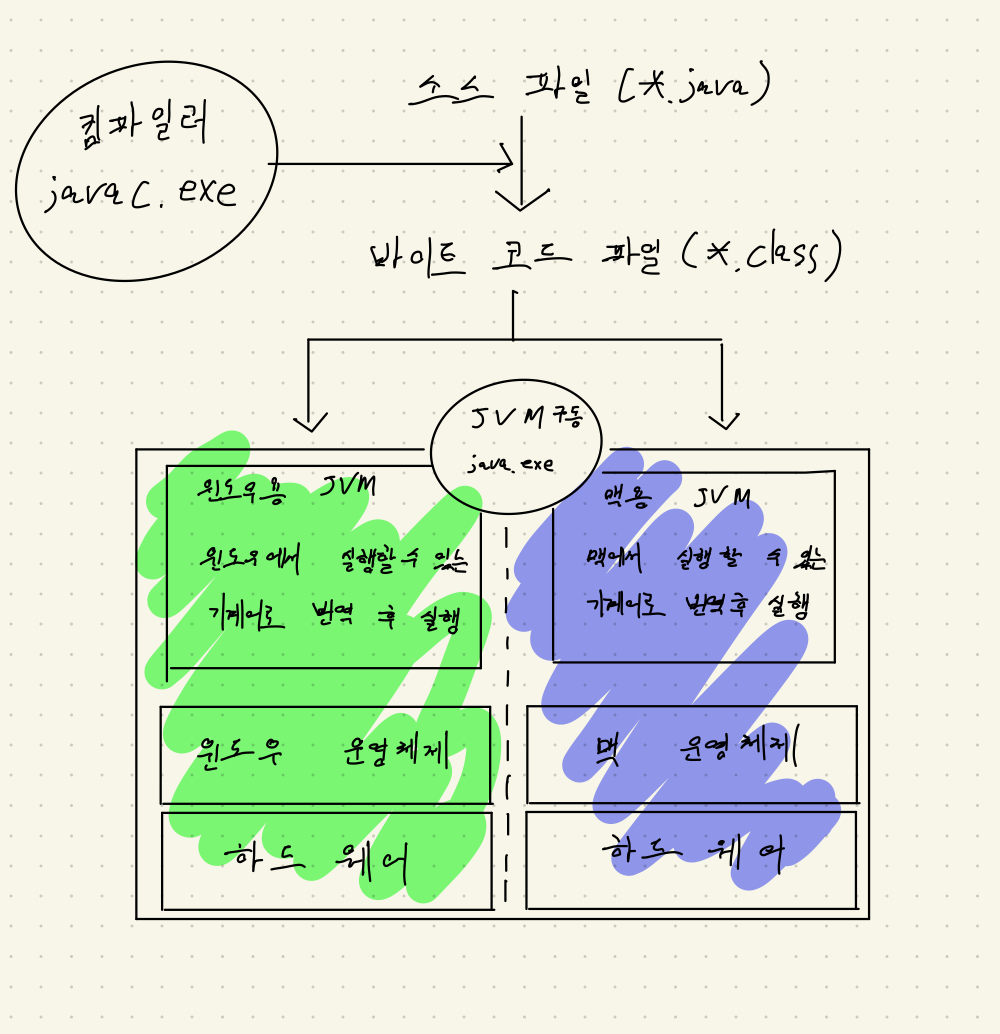 소스 파일 (*.java)
컴파일러
javac.exe
바이트 코드 파일 (*.class)
JVM 구동
java.exe
윈도우용 JVM
윈도우에서 실행할 수 있는
기계어로 번역 후 실행
맥용 JVM
맥에서 실행 할 수 있는
기계어로 번역 후 실행
윈도우 운영체제
맥 운영체제
하드웨어
하드웨어